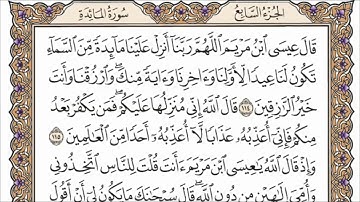 الجزء السابع سورة المائدة
قَالَ عِيسَى ٱبۡنُ مَرۡيَمَ ٱللَّهُمَّ رَبَّنَآ أَنزِلۡ عَلَيۡنَا مَآئِدَةٗ مِّنَ ٱلسَّمَآءِ
تَكُونُ لَنَا عِيدٗا لِّأَوَّلِنَا وَءَاخِرِنَا وَءَايَةٗ مِّنكَۖ وَٱرۡزُقۡنَا وَأَنتَ
خَيۡرُ ٱلرَّٰزِقِينَ ١١٤ قَالَ ٱللَّهُ إِنِّي مُنَزِّلُهَا عَلَيۡكُمۡۖ فَمَن يَكۡفُرۡ بَعۡدُ
مِنكُمۡ فَإِنِّيٓ أُعَذِّبُهُۥ عَذَابٗا لَّآ أُعَذِّبُهُۥٓ أَحَدٗا مِّنَ ٱلۡعَٰلَمِينَ ١١٥
وَإِذۡ قَالَ ٱللَّهُ يَٰعِيسَى ٱبۡنَ مَرۡيَمَ ءَأَنتَ قُلۡتَ لِلنَّاسِ ٱتَّخِذُونِي
وَأُمِّيَ إِلَٰهَيۡنِ مِن دُونِ ٱللَّهِۖ قَالَ سُبۡحَٰنَكَ مَا يَكُونُ لِيٓ أَنۡ أَقُولَ